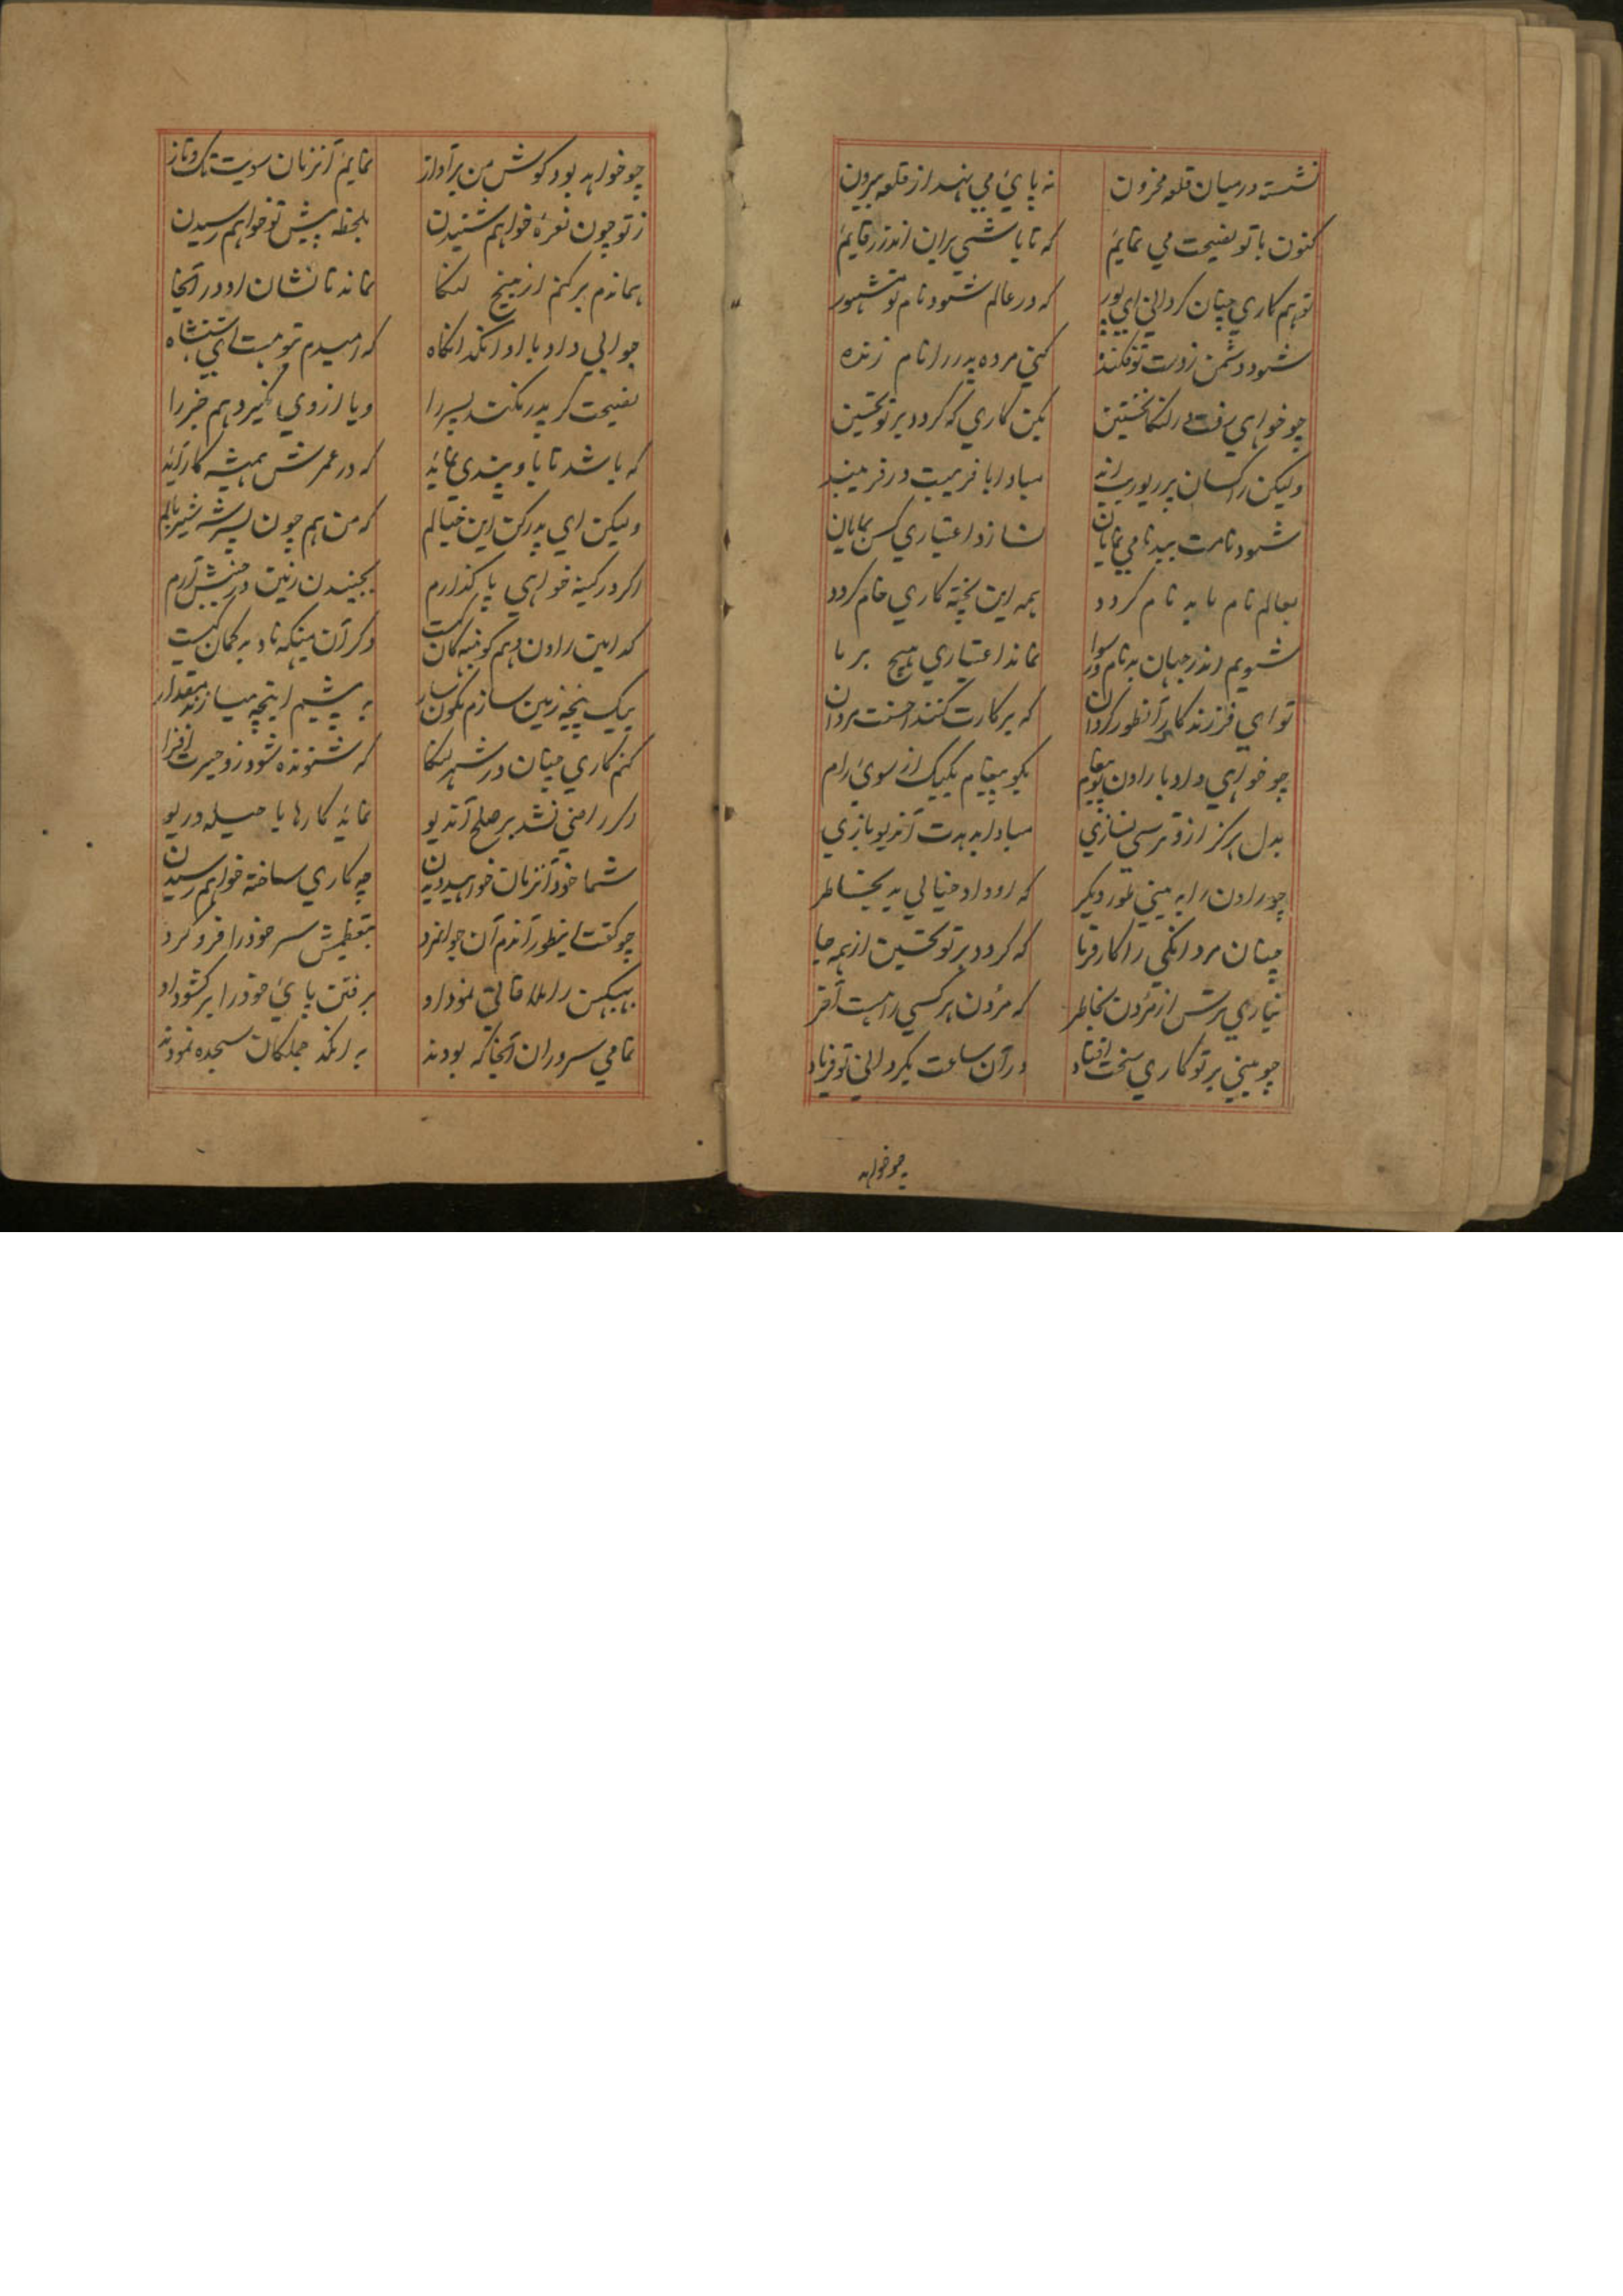 نشسته درمیان قلعه مخزون نه پایٔ می نهد از قلعه بیرون
کنون با تو نصیحت می نمایم که تا باشی بران اندرز قایم
تو هم کاری چنان کردانی ای پور که در عالم شود نام تو مشهور
شود دشمن زدست تو فکنده کنی مرده پدر را نام زنده
چو خواهی رفت در لنکا نخستین بکن کاری که کردد بر تو تحسین
ولیکن راکسان پر ریورند مبادا با فریبت در فریبند
شود نامت ببدنامی نمایان نسازد اعتباری کس بمایان
بعالم نام ما بد نام کردد همه این پخته کاری خام کردد
شویم اندر جهان بدنام و رسوا نماند اعتباری هیچ بر ما
تو ای فرزند کار آنطور کردان که بر کارت کنند احسنت مردان
چو خواهی داد با راون پیغام بکو پیغام یکیک از سویٔ رام
بدل هرکز ازو ترسی نسازی مبادا بدهدت آندیو بازی
چو راون را به بینی طور دیکر که او داد خیالی بد بخاطر
چنان مردانکی را کار فرما که کردد بر تو تحسین از همه جا
نیاری ترس از مردن بخاطر که مردن هر کسی را هست آخر
چو بینی بر تو کاری سخت افتاد در آن ساعت بکردانی تو فریاد
چو خواهد
چو خواهد بود کوش من بر آواز نمایم آنزمان سویت تک و تاز
ز تو چون نعره خواهم شنیدن بلحظه پیش تو خواهم رسیدن
هماندم بر کنم از بیخ لنکا نماند تا نشان او در آنجا
جوابی داد با او انکد انکاه که امیدم تو هست ای شهنشاه
نصیحت کر پدر نکند پسر را ویا از وی نکیرد هم خبر را
که باشد تا باو پندی نماید که در عمرش همیشه کار آید
ولیکن ای پدر کن این خیالم که من هم چون پسر شیر بالم
اکر در کینه خواهی پا کذارم بجنبیدن زمین در جنبش آرم
کدامین راون و هم کونبهه کان کیست دکر آن میکهه ناد بد کمان کیست
بیک پنجه زمین سازم نکون سار به پیشم اینچه میسازند مقدار
کنم کاری چنان در شهر لنکا که شنونده شود زو حیرت افزا
اکر راضی نشد بر صلح آندیو نماید کارها با حیله و ریو
شما خود آنزمان خواهید دیدن چه کاری ساخته خواهم رسیدن
چو کفت اینطور آندم آن جوانمرد بتعظیمش سر خود را فرو کرد
ببهیکن را ملاقاتی نمود او برفتن پایٔ خود را بر کشود او
تمامی سروران آنجا که بودند به انکد جملکان سجده نمودند